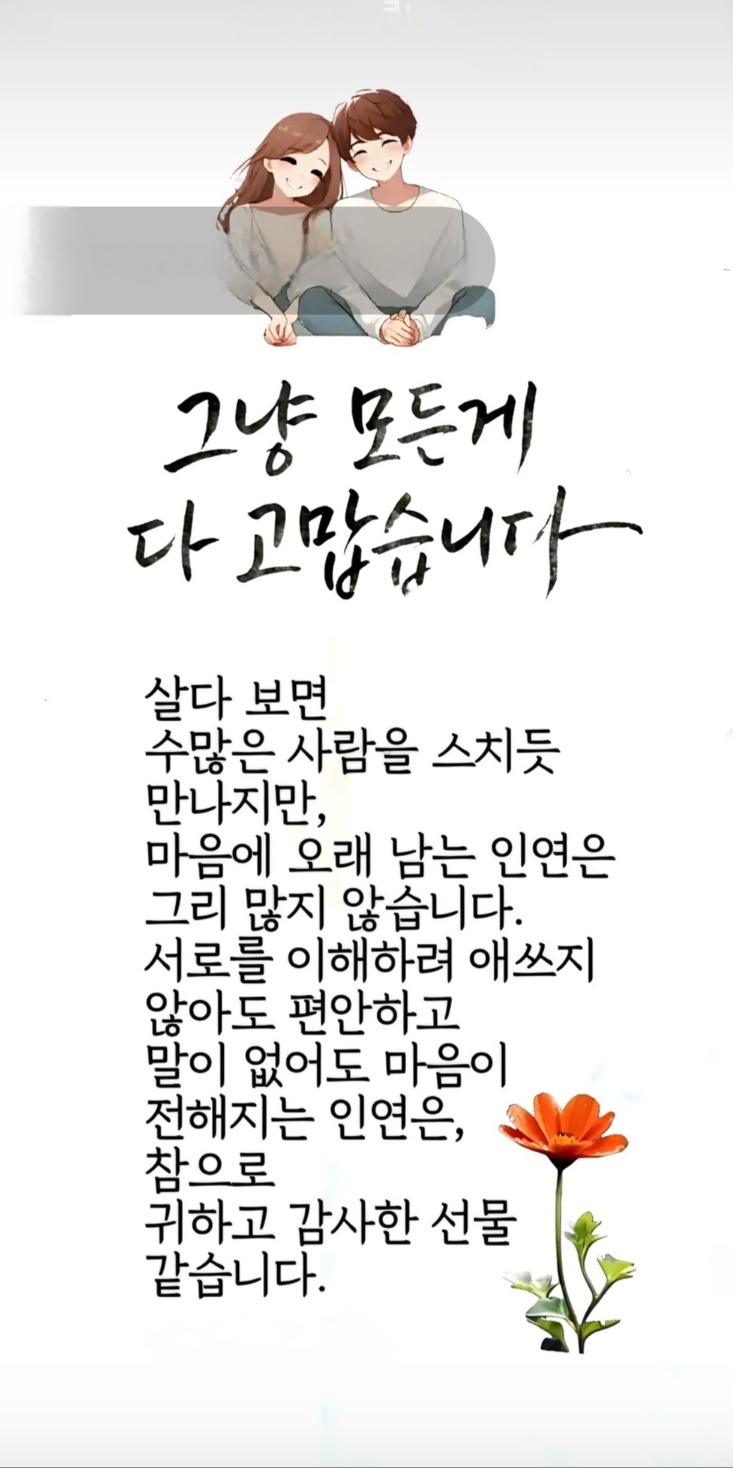 그냥 모든게
다 고맙습니다
살다 보면
수많은 사람을 스치듯
만나지만,
마음에 오래 남는 인연은
그리 많지 않습니다.
서로를 이해하려 애쓰지
않아도 편안하고
말이 없어도 마음이
전해지는 인연은,
참으로
귀하고 감사한 선물
같습니다.